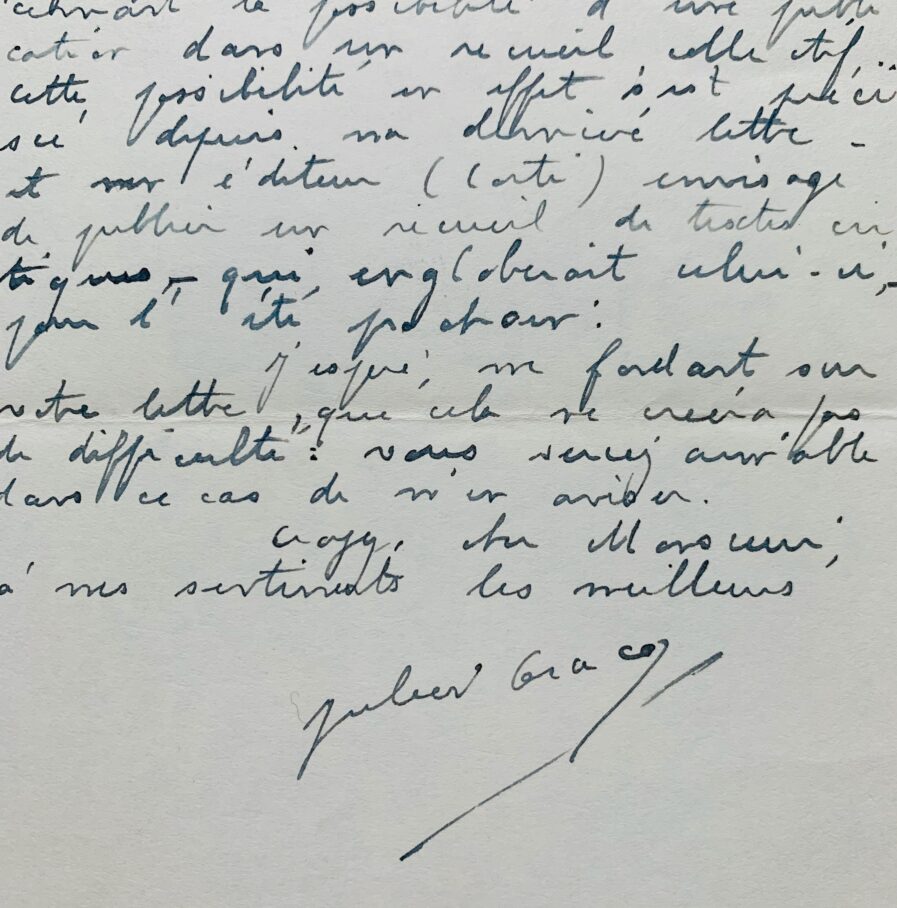 la possibilité d'une publi
cation dans un recueil collectif...
cette possibilité en effet s'est préci
sée depuis ma dernière lettre -
et mon éditeur (Corti) envisage
de publier un recueil de textes cri
tiques, - qui engloberait celui-ci, -
pour l'été prochain.
J'espère, me fondant sur
votre lettre, que cela ne créera pas
de difficulté : vous seriez aimable
dans ce cas de m'en aviser.
Croyez, cher Monsieur,
à mes sentiments les meilleurs
Julien Gracq